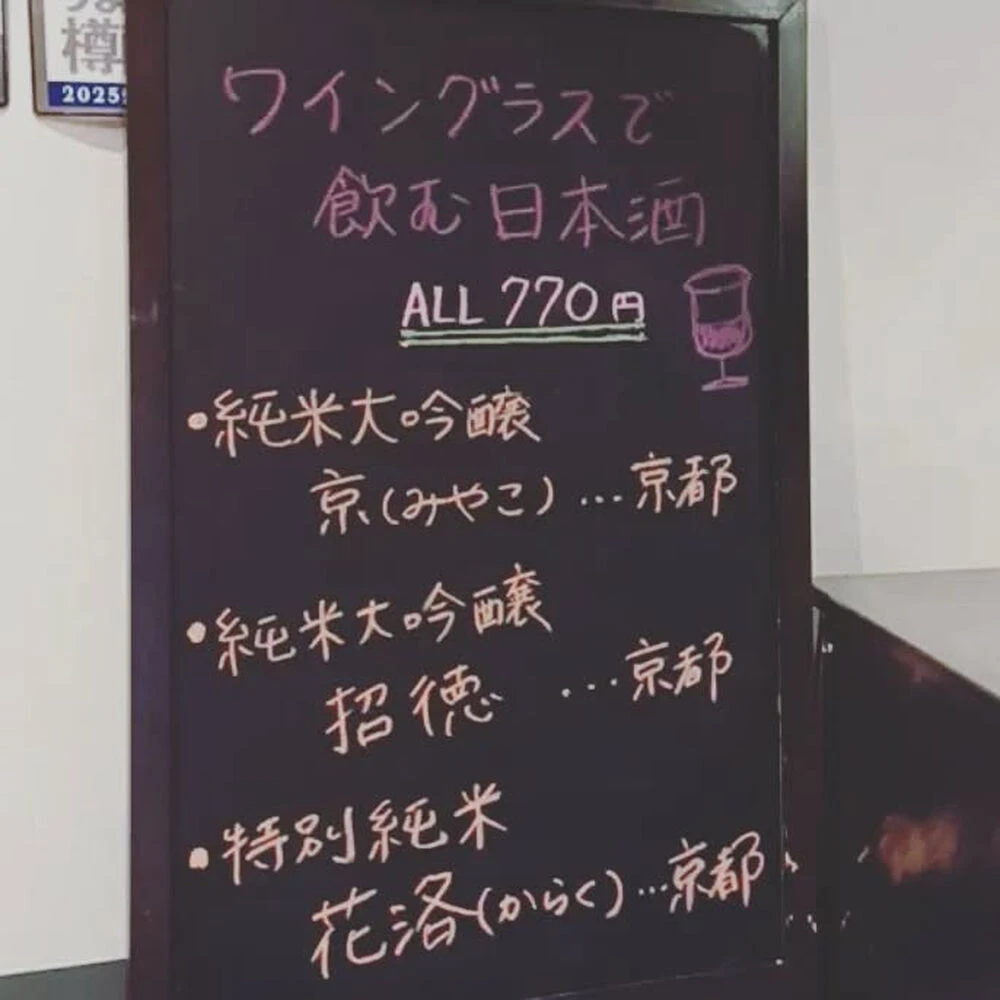 樽
2025
ワイングラスで
飲む日本酒
ALL 770円
・純米大吟醸
京(みやこ)…京都
・純米大吟醸
招徳 …京都
・特別純米
花洛(からく)…京都